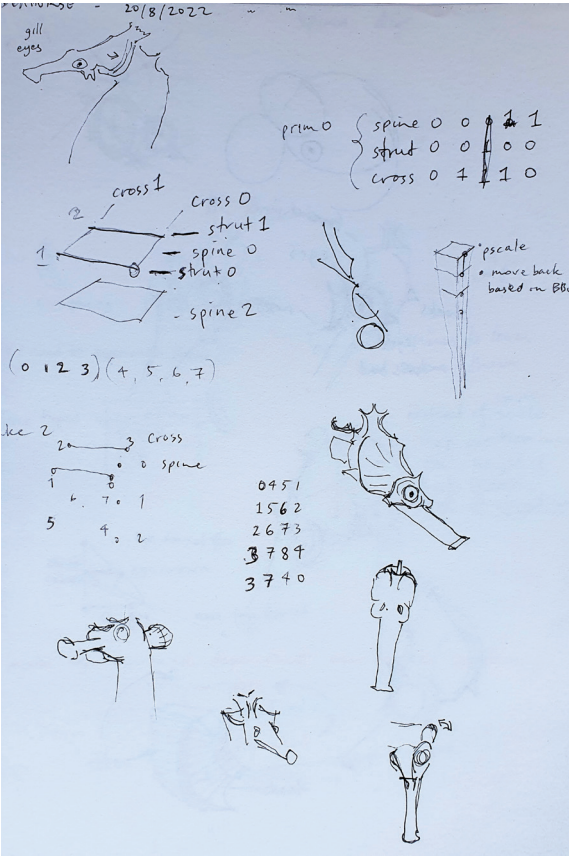 20/8/2022
gill
eyes
prim 0
spine 0 0 1 1
strut 0 0 0 0
cross 0 1 1 0
cross 1
cross 0
2
strut 1
1
spine 0
strut 0
spine 2
pscale
move back
based on BB
(0 1 2 3) (4, 5, 6, 7)
ke 2
2 3 cross
0 spine
1 0
6 7 1
5 4 2
0451
1562
2673
3784
3740